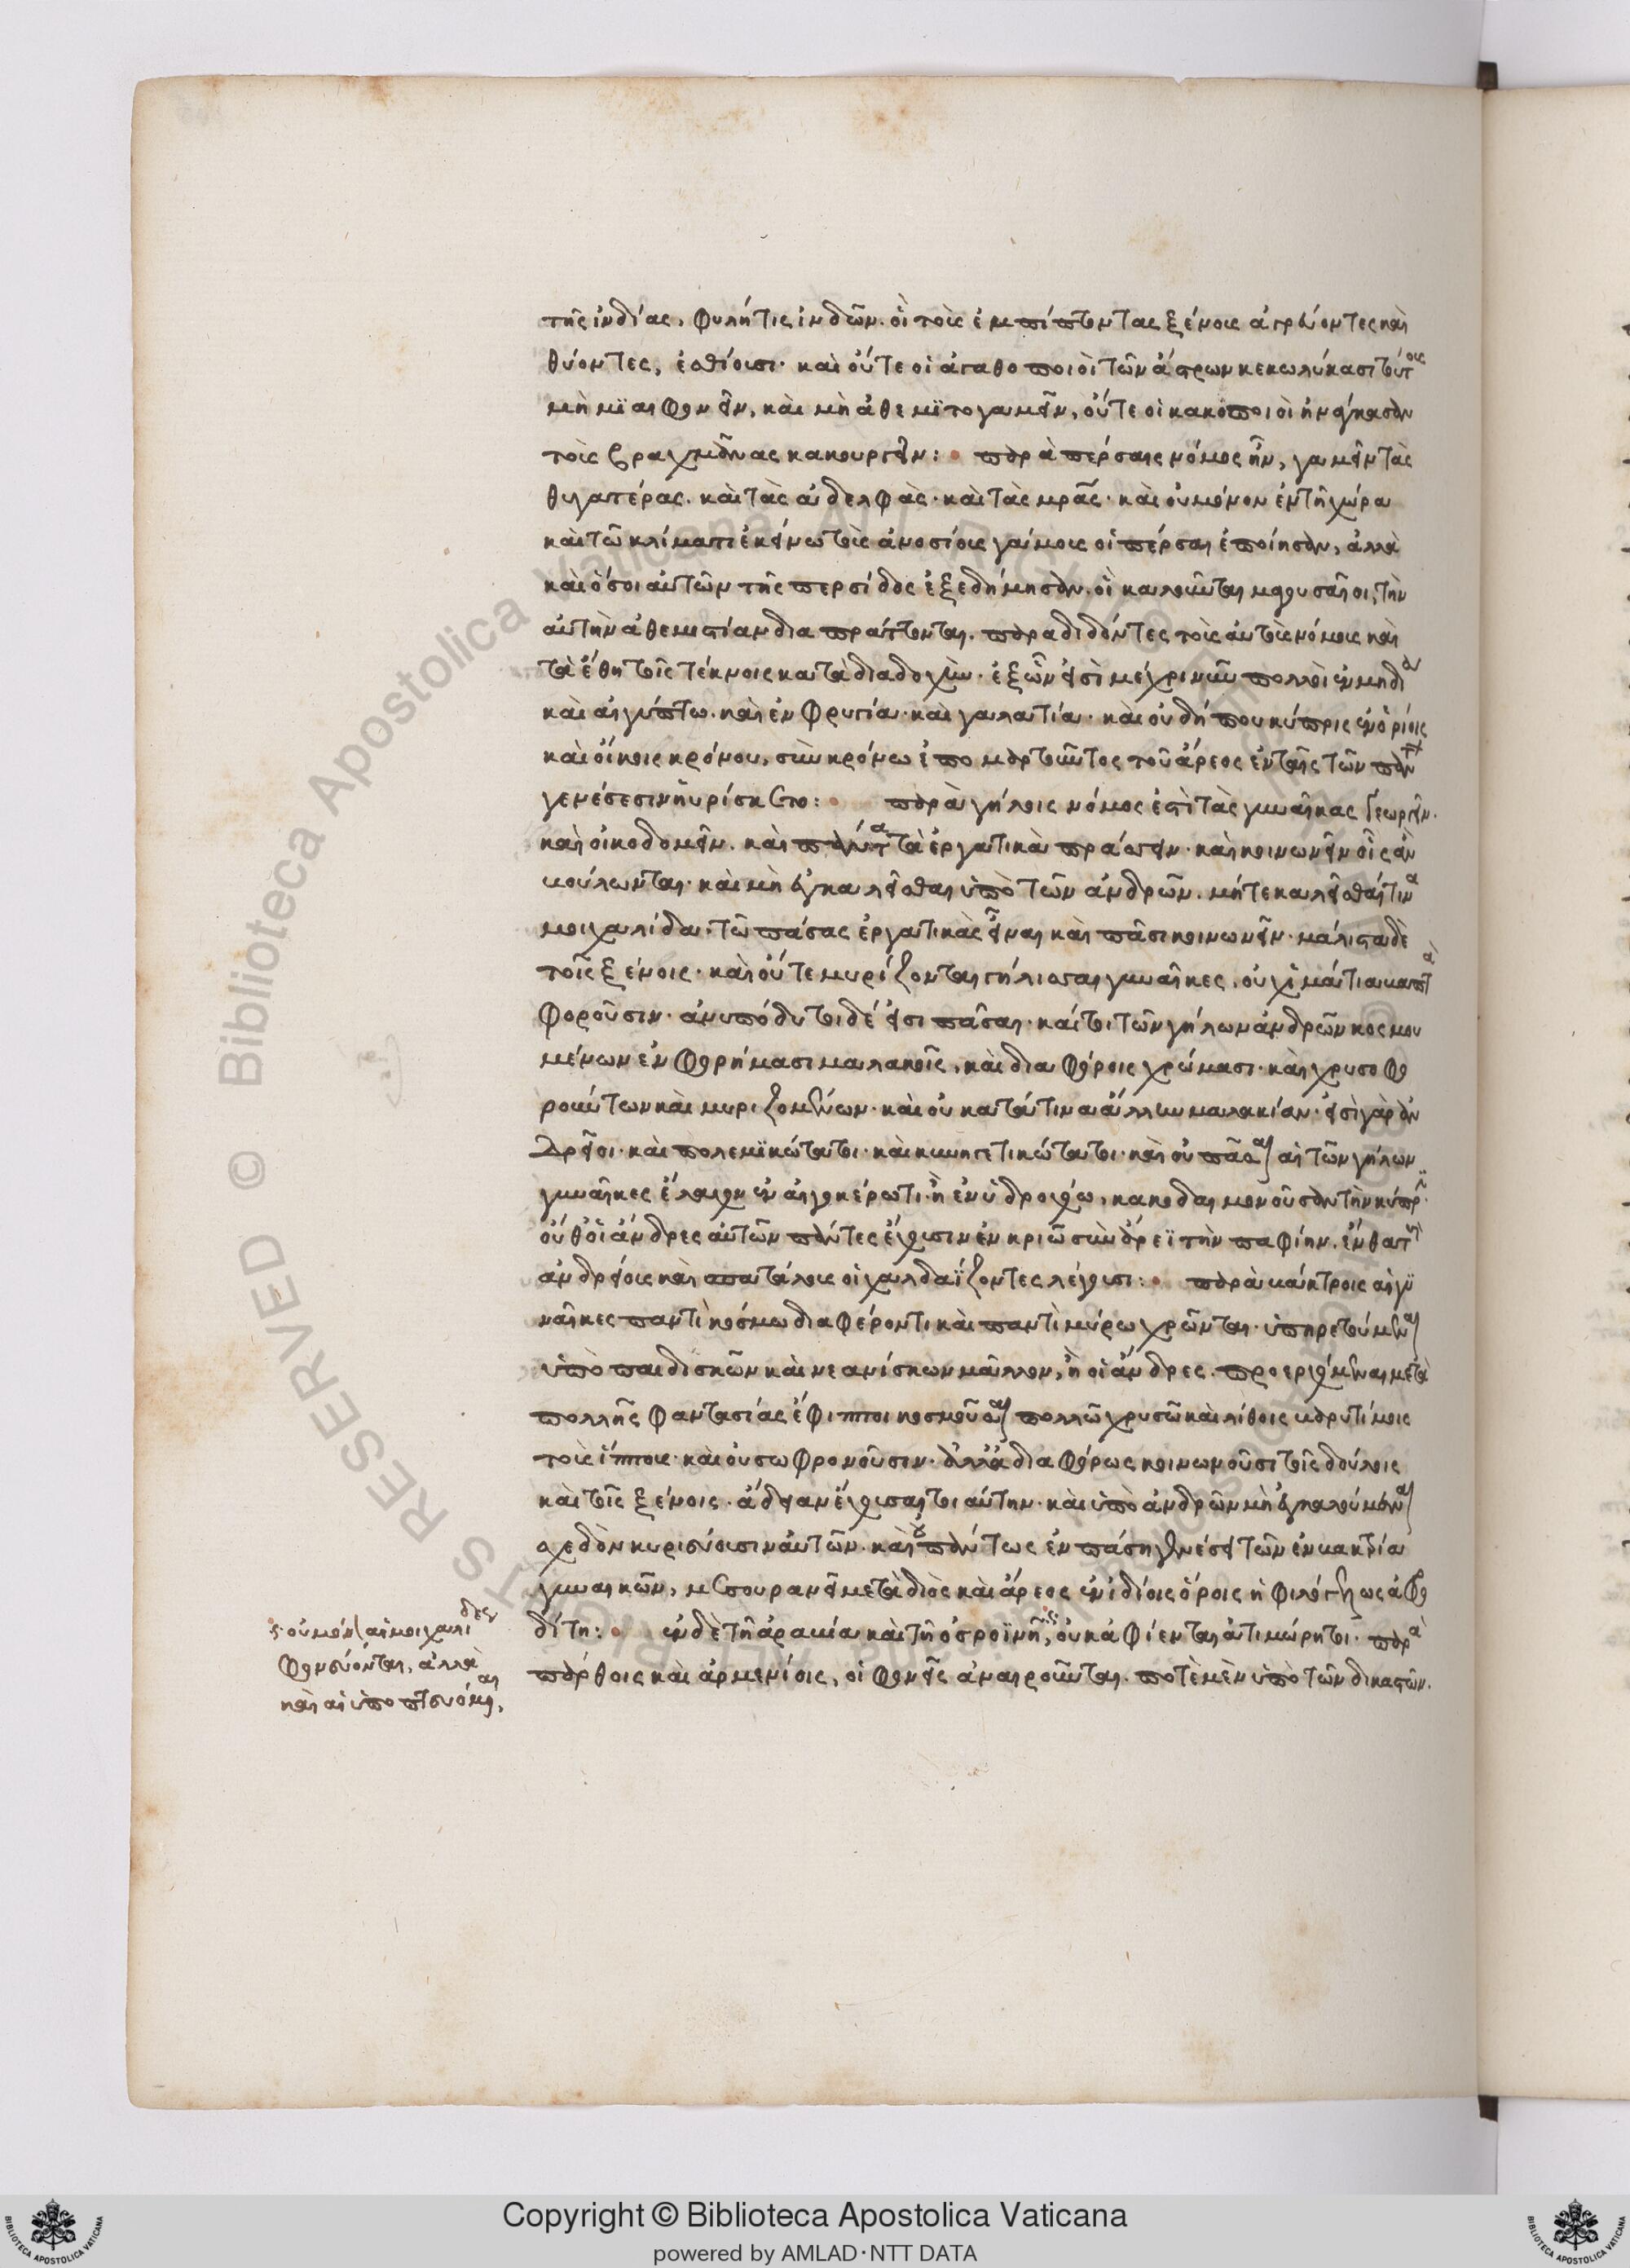 τῆς ἰνδίας, φυλή τις ἰνδῶν. οἳ τοὺς ἐμπίπτοντας ξένους ἀγρεύοντες καὶ
θύοντες, ἐσθίουσι· καὶ οὔτε οἱ ἀγαθοποιοὶ τῶν ἄστρων κεκωλύκασι τούτους
μὴ μιαιφονεῖν, καὶ μὴ ἀθεμιτογαμεῖν, οὔτε οἱ κακοποιοὶ ἠνάγκασαν
τοὺς βραχμᾶνας κακουργεῖν: παρὰ πέρσαις νόμος ἦν, γαμεῖν τὰς
θυγατέρας. καὶ τὰς ἀδελφὰς· καὶ τὰς μρᾶς· καὶ οὐ μόνον ἐν τῇ χώρα
καὶ τῶ κλίματι ἐκείνω τοὺς ἀνοσίους γάμους οἱ πέρσαι ἐποίησαν, ἀλλὰ
καὶ ὅσοι αὐτῶν τῆς περσίδος ἐξεδήμησαν. οἳ καλοῦνται μαγουσαῖοι, τὴν
αὐτὴν ἀθεμιστίαν διαπράττονται. παραδιδόντες τοὺς αὐτοὺς νόμους καὶ
τὰ ἔθη τοῖς τέκνοις κατὰ διαδοχήν· ἐξ ὧν εἰσὶ μέχρι νῦν πολλοὶ ἐν μηδία
καὶ αἰγύπτω. καὶ ἐν φρυγία· καὶ γαλατία· καὶ οὐ δήπου κύπρις ἐν ὁρίοις
καὶ οἴκοις κρόνου, σὺν κρόνω ἐπομαρτυροῦντος τοῦ ἄρεος ἐν ταῖς τῶν πάντων
γενέσεσιν ηὑρίσκετο: παρὰ γήλοις νόμος ἐστὶ τὰς γυναῖκας γεωργεῖν.
καὶ οἰκοδομεῖν. καὶ πάντα τὰ ἐργατικὰ πράσσειν· καὶ κοινωνεῖν οἷς ἂν
βούλωνται· καὶ μὴ ἐγκαλεῖσθαι ὑπὸ τῶν ἀνδρῶν. μήτε καλεῖσθαί τινα
μοιχαλίδα· τῶ πάσας ἐργατικὰς εἶναι καὶ πᾶσι κοινωνεῖν· μάλιστα δὲ
τοῖς ξένοις· καὶ οὔτε μυρίζονται γήλισσαι γυναῖκες, οὐχ ἱμάτια βαπτὰ
φοροῦσιν· ἀνυπόδυτοι δέ εἰσι πᾶσαι· καί τοι τῶν γήλων ἀνδρῶν κοσμου
μένων ἐν φορήμασι μαλακοῖς, καὶ διαφόροις χρώμασι· καὶ χρυσοφο
ρούντων καὶ μυριζομένων· καὶ οὐ κατά τινα ἄλλην μαλακίαν· εἰσὶ γὰρ ἀν
δρεῖοι· καὶ πολεμικώτατοι· καὶ κυνηγετικώτατοι· καὶ οὐ πᾶσαι αἱ τῶν γήλων
γυναῖκες ἔλαχον ἐν αἰγοκέρωτι ἢ ἐν ὑδροχόω, κακοδαιμονοῦσαν τὴν κύπρ.
οὔθ' οἱ ἄνδρες αὐτῶν πάντες ἔχουσιν ἐν κριῶ σὺν ἄρεϊ τὴν παφίην. ἔνθα τοὺς
ἀνδρείους καὶ σπατάλους οἱ χαλδαΐζοντες λέγουσι: παρὰ βάκτροις αἱ γυ
ναῖκες παντὶ κόσμω διαφέροντι καὶ παντὶ μύρω χρῶνται· ὑπηρετούμεναι
ὑπὸ παιδισκῶν καὶ νεανίσκων μᾶλλον, ἢ οἱ ἄνδρες. προερχόμεναι μετὰ
πολλῆς φαντασίας ἔφιπποι κοσμοῦσαι πολλῶ χρυσῶ καὶ λίθοις βαρυτίμοις
τοὺς ἵππους· καὶ οὐ σωφρονοῦσιν· ἀλλὰ διαφόρως κοινωνοῦσι τοῖς δούλοις
καὶ τοῖς ξένοις· ἄδειαν ἔχουσαι τοιαύτην· καὶ ὑπὸ ἀνδρῶν μὴ ἐγκαλούμεναι
σχεδὸν κυριεύουσιν αὐτῶν. καὶ οὐ πάντως ἐν πάση γενέσει τῶν ἐν βακτρία
γυναικῶν, μεσουρανεῖ μετὰ διὸς καὶ ἄρεος ἐν ἰδίοις ὅροις ἡ φιλόγελως ἀφρο
δίτη: ἐν δὲ τῇ ἀραβία καὶ τῇ ὀσροϊνῇ, οὐκ ἀφίενται ἀτιμώρητοι· παρὰ
πάρθοις καὶ ἀρμενίοις, οἱ φονεῖς ἀναιροῦνται. ποτὲ μὲν ὑπὸ τῶν δικαστῶν.
οὐ μόνον αἱ μοιχαλίδες
φονεύονται, ἀλλὰ
καὶ αἱ ὑποπτευόμεναι,
© Biblioteca Apostolica Vaticana
Copyright © Biblioteca Apostolica Vaticana
powered by AMLAD·NTT DATA
BIBLIOTECA APOSTOLICA VATICANA
BIBLIOTECA APOSTOLICA VATICANA